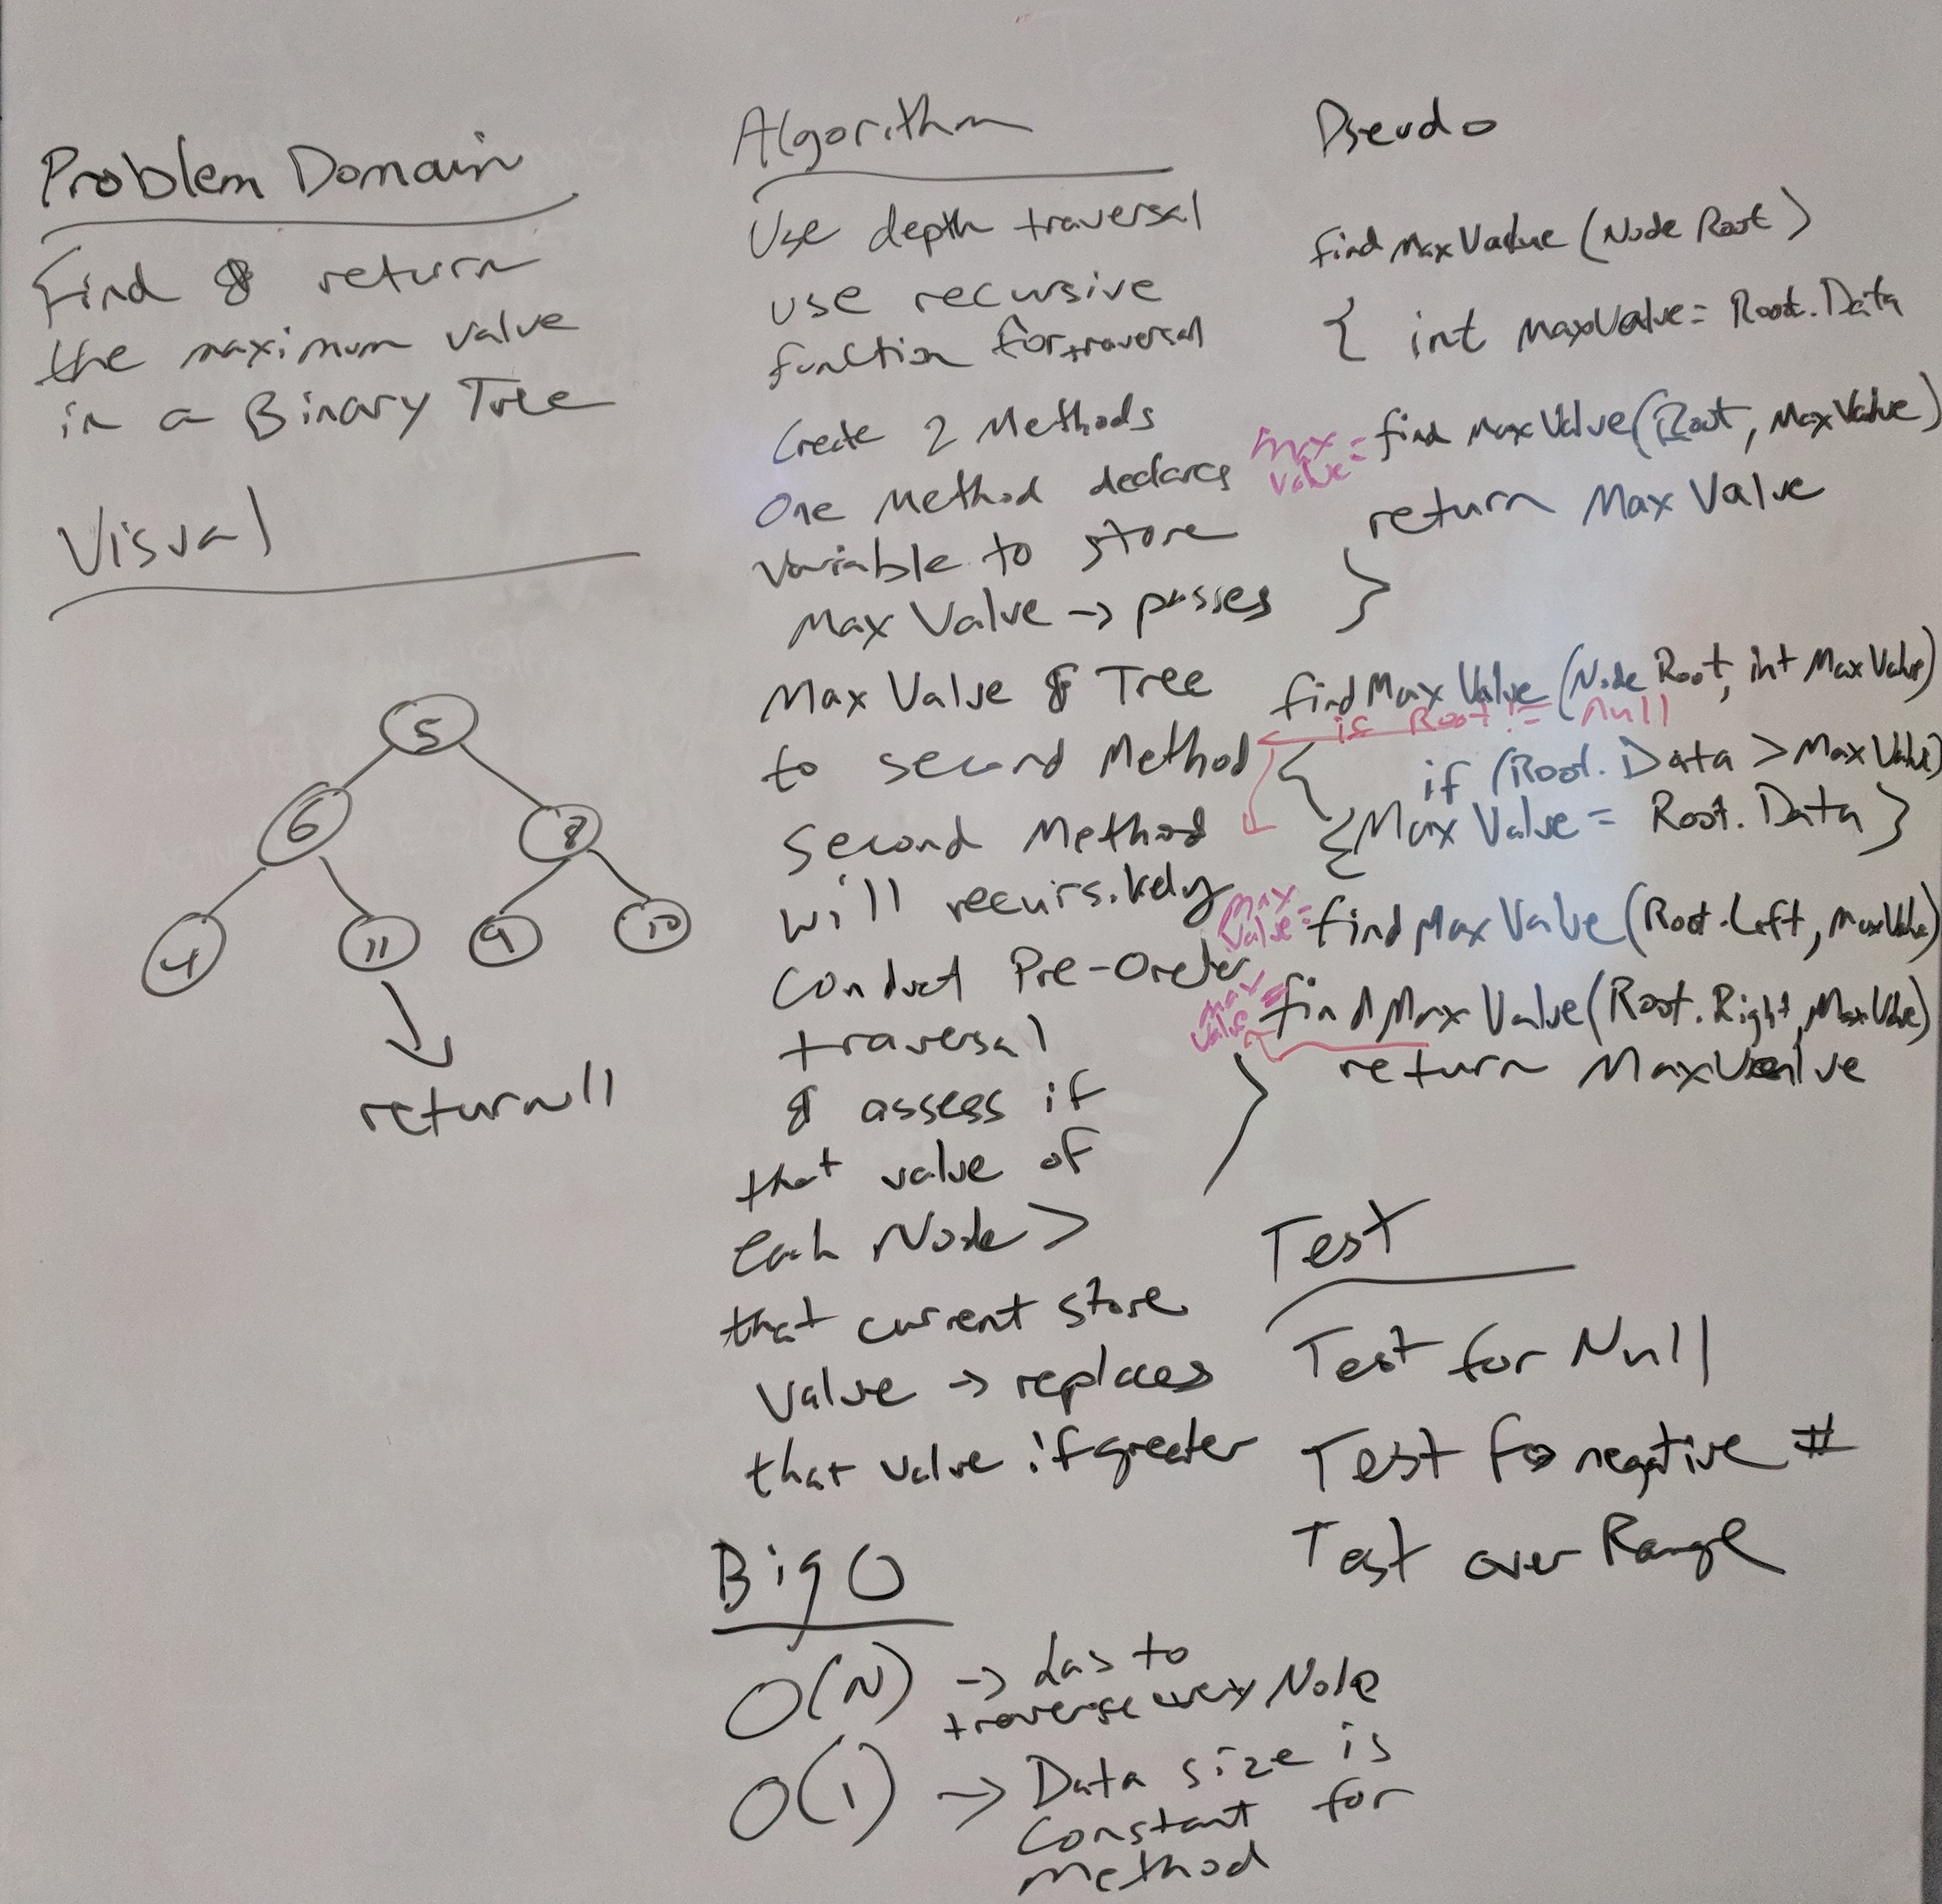 Problem Domain
Find & return
the maximum value
in a Binary Tree
Visual
5
6
8
4
11
9
10
return 11
Algorithm
Use depth traversal
use recursive
function for traversal
Create 2 Methods
One Method declares
Variable to store
Max Value → passes
Max Value & Tree
to second Method
Second Method
will
conduct Pre-Order
traversal
& assess if
that value of
each Node >
that current store
value → replaces
that value if greater
Big O
O(N) → has to
traverse every Node
O(1) → Data size is
constant for
method
Pseudo
find Max Value (Node Root)
{ int maxValue = Root.Data
max value = find Max Value (Root, Max Value)
return Max Value
}
find Max Value (Node Root, int Max Value)
if Root != null
{ if (Root.Data > Max Value)
{ Max Value = Root.Data }
max value = find Max Value (Root.Left, Max Value)
max value = find Max Value (Root.Right, Max Value)
return MaxValue
}
Test
Test for Null
Test for negative #
Test over Range